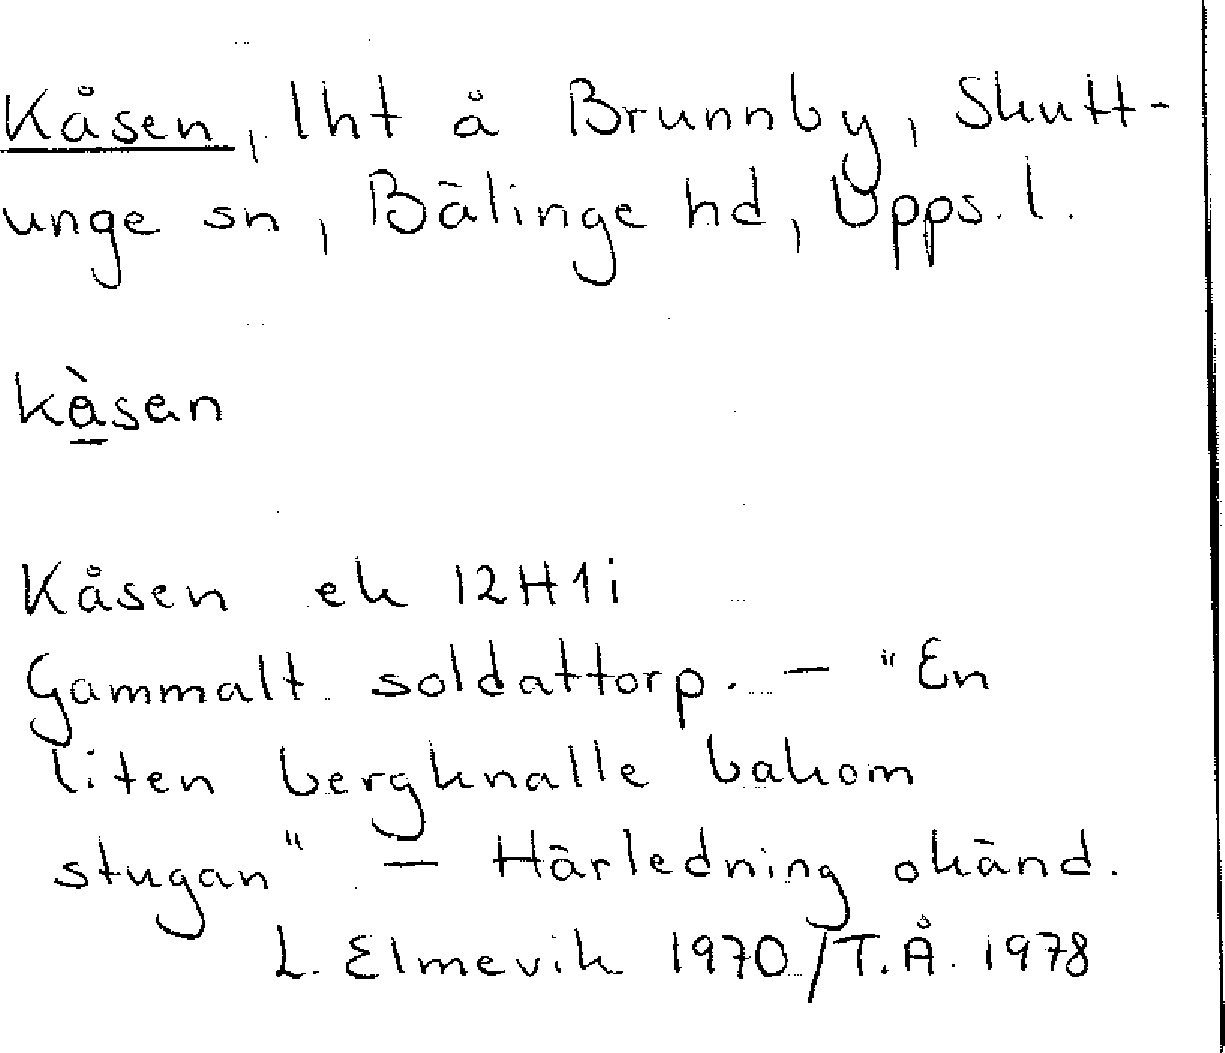 Kåsen, lht å Brunnby, Skutt-
unge sn, Bälinge hd, Upps. l.
kå̀sen
Kåsen ek 12H1i
Gammalt soldattorp. – "En
liten bergknalle bakom
stugan" – Härledning okänd.
L. Elmevik 1970/T.Å. 1978